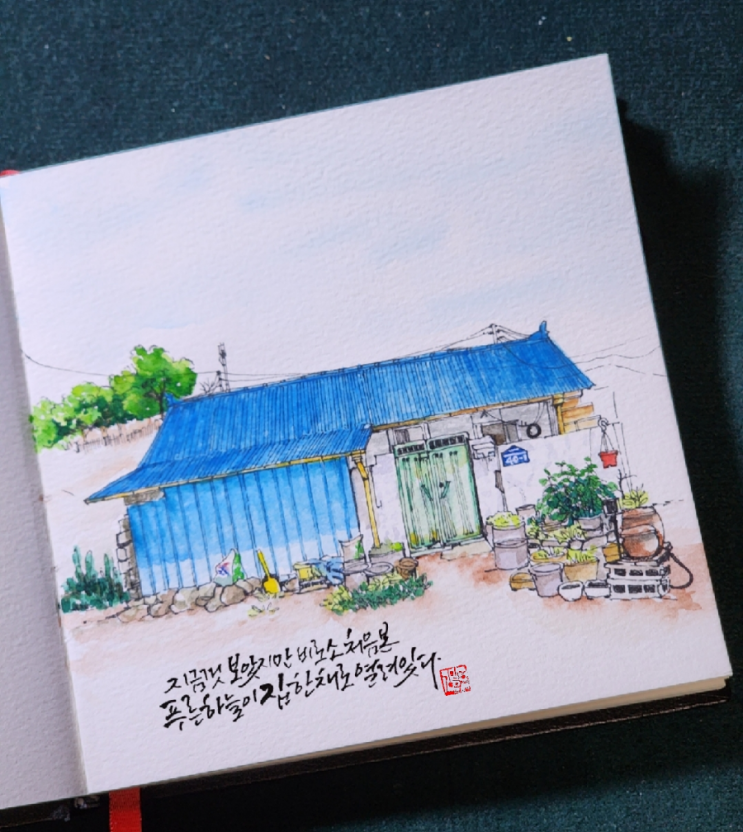 46-1
지금껏 보았지만 비로소 처음 본
푸른 하늘이 집 한 채로 열려 있다.